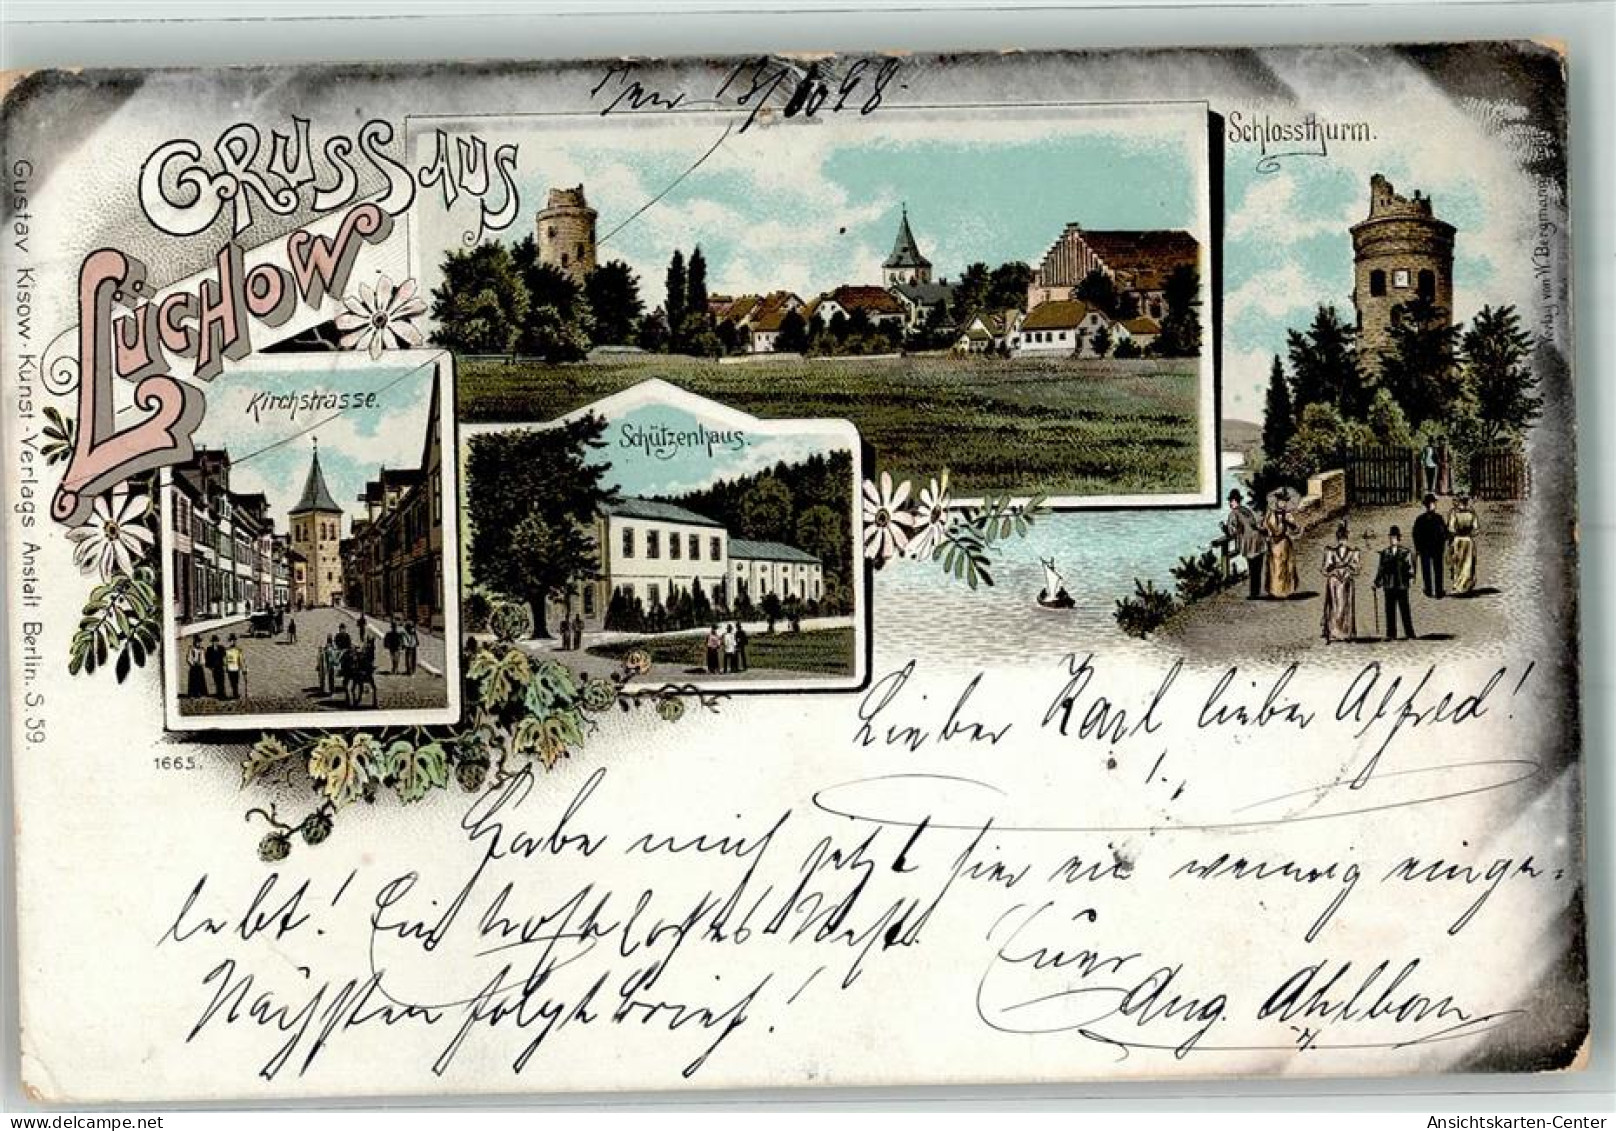 Den 13/10 98.
GRUSS AUS
LÜCHOW
Schlossthurm.
Kirchstrasse.
Schützenhaus.
Gustav Kisow. Kunst-Verlags Anstalt Berlin. S 59.
Verlag von W. Bergmann
1665.
Lieber Karl lieber Alfred!
Habe mich jetzt hier ein wenig einge-
lebt! Ein
Nächsten folgt Brief!
Euer
Aug. Ahlborn
Ansichtskarten-Center